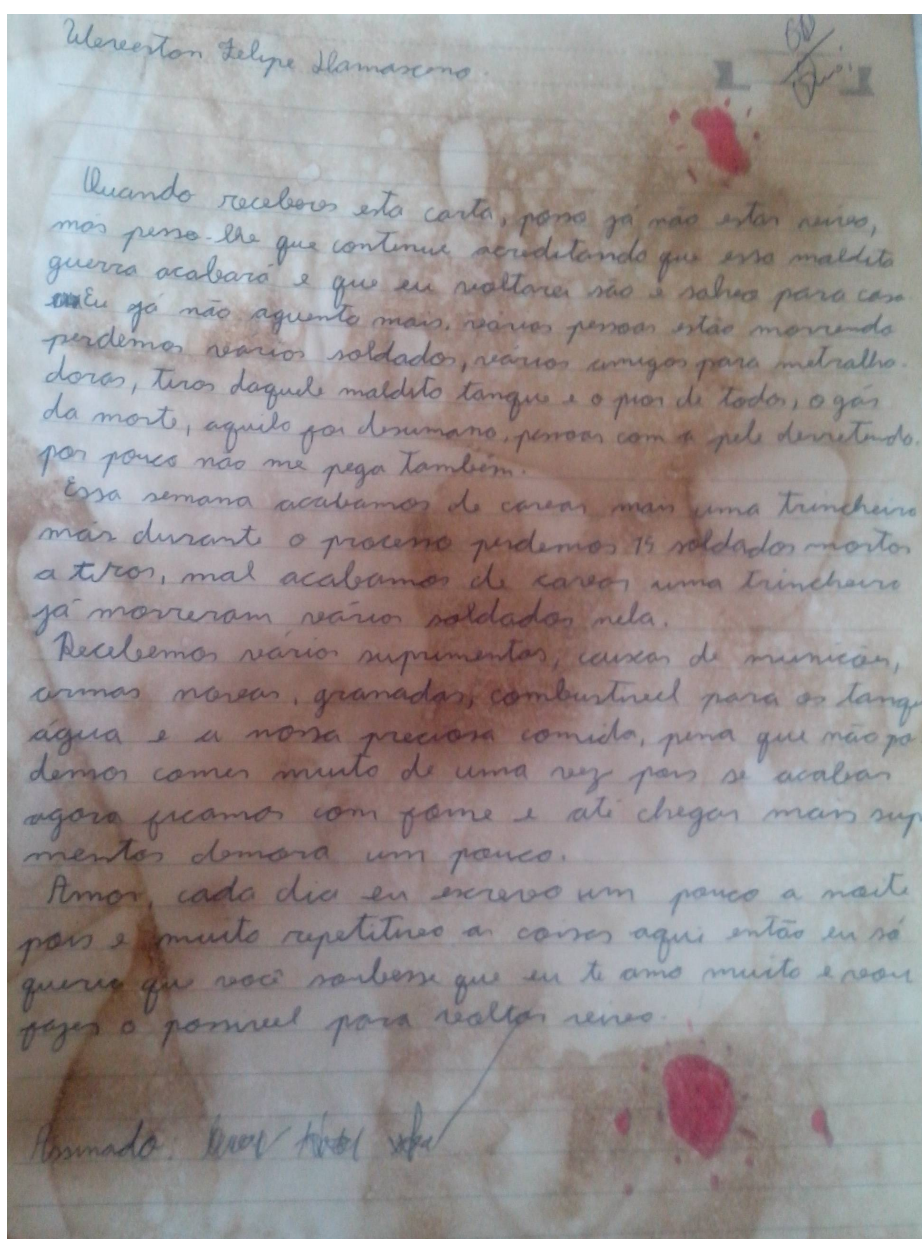 Felipe Damasceno.
Quando receberes esta carta, posso já não estar vivo,
mas pesso-lhe que continue acreditando que essa maldita
guerra acabará e que eu voltarei são e salvo para casa
Eu já não aguento mais, várias pessoas estão morrendo
perdemos vários soldados, vários amigos para metralha-
doras, tiros daquele maldito tanque e o pior de todos, o gás
da morte, aquilo foi desumano, pessoas com a pele derretendo,
por pouco não me pega também.
Essa semana acabamos de cavar mais uma trincheira
mas durante o processo perdemos 15 soldados mortos
a tiros, mal acabamos de cavar uma trincheira
já morreram vários soldados nela.
Recebemos vários suprimentos, caixas de munições,
armas novas, granadas, combustível para os tanqu
água e a nossa preciosa comida, pena que não po
demos comer muito de uma vez pois se acabar
agora ficamos com fome e até chegar mais sup
mentos demora um pouco.
Amor, cada dia eu escrevo um pouco a noite
pois e muito repetitivo as coisas aqui então eu só
queria que você soubesse que eu te amo muito e vou
fazer o possivel para voltar vivo.
Assinado: